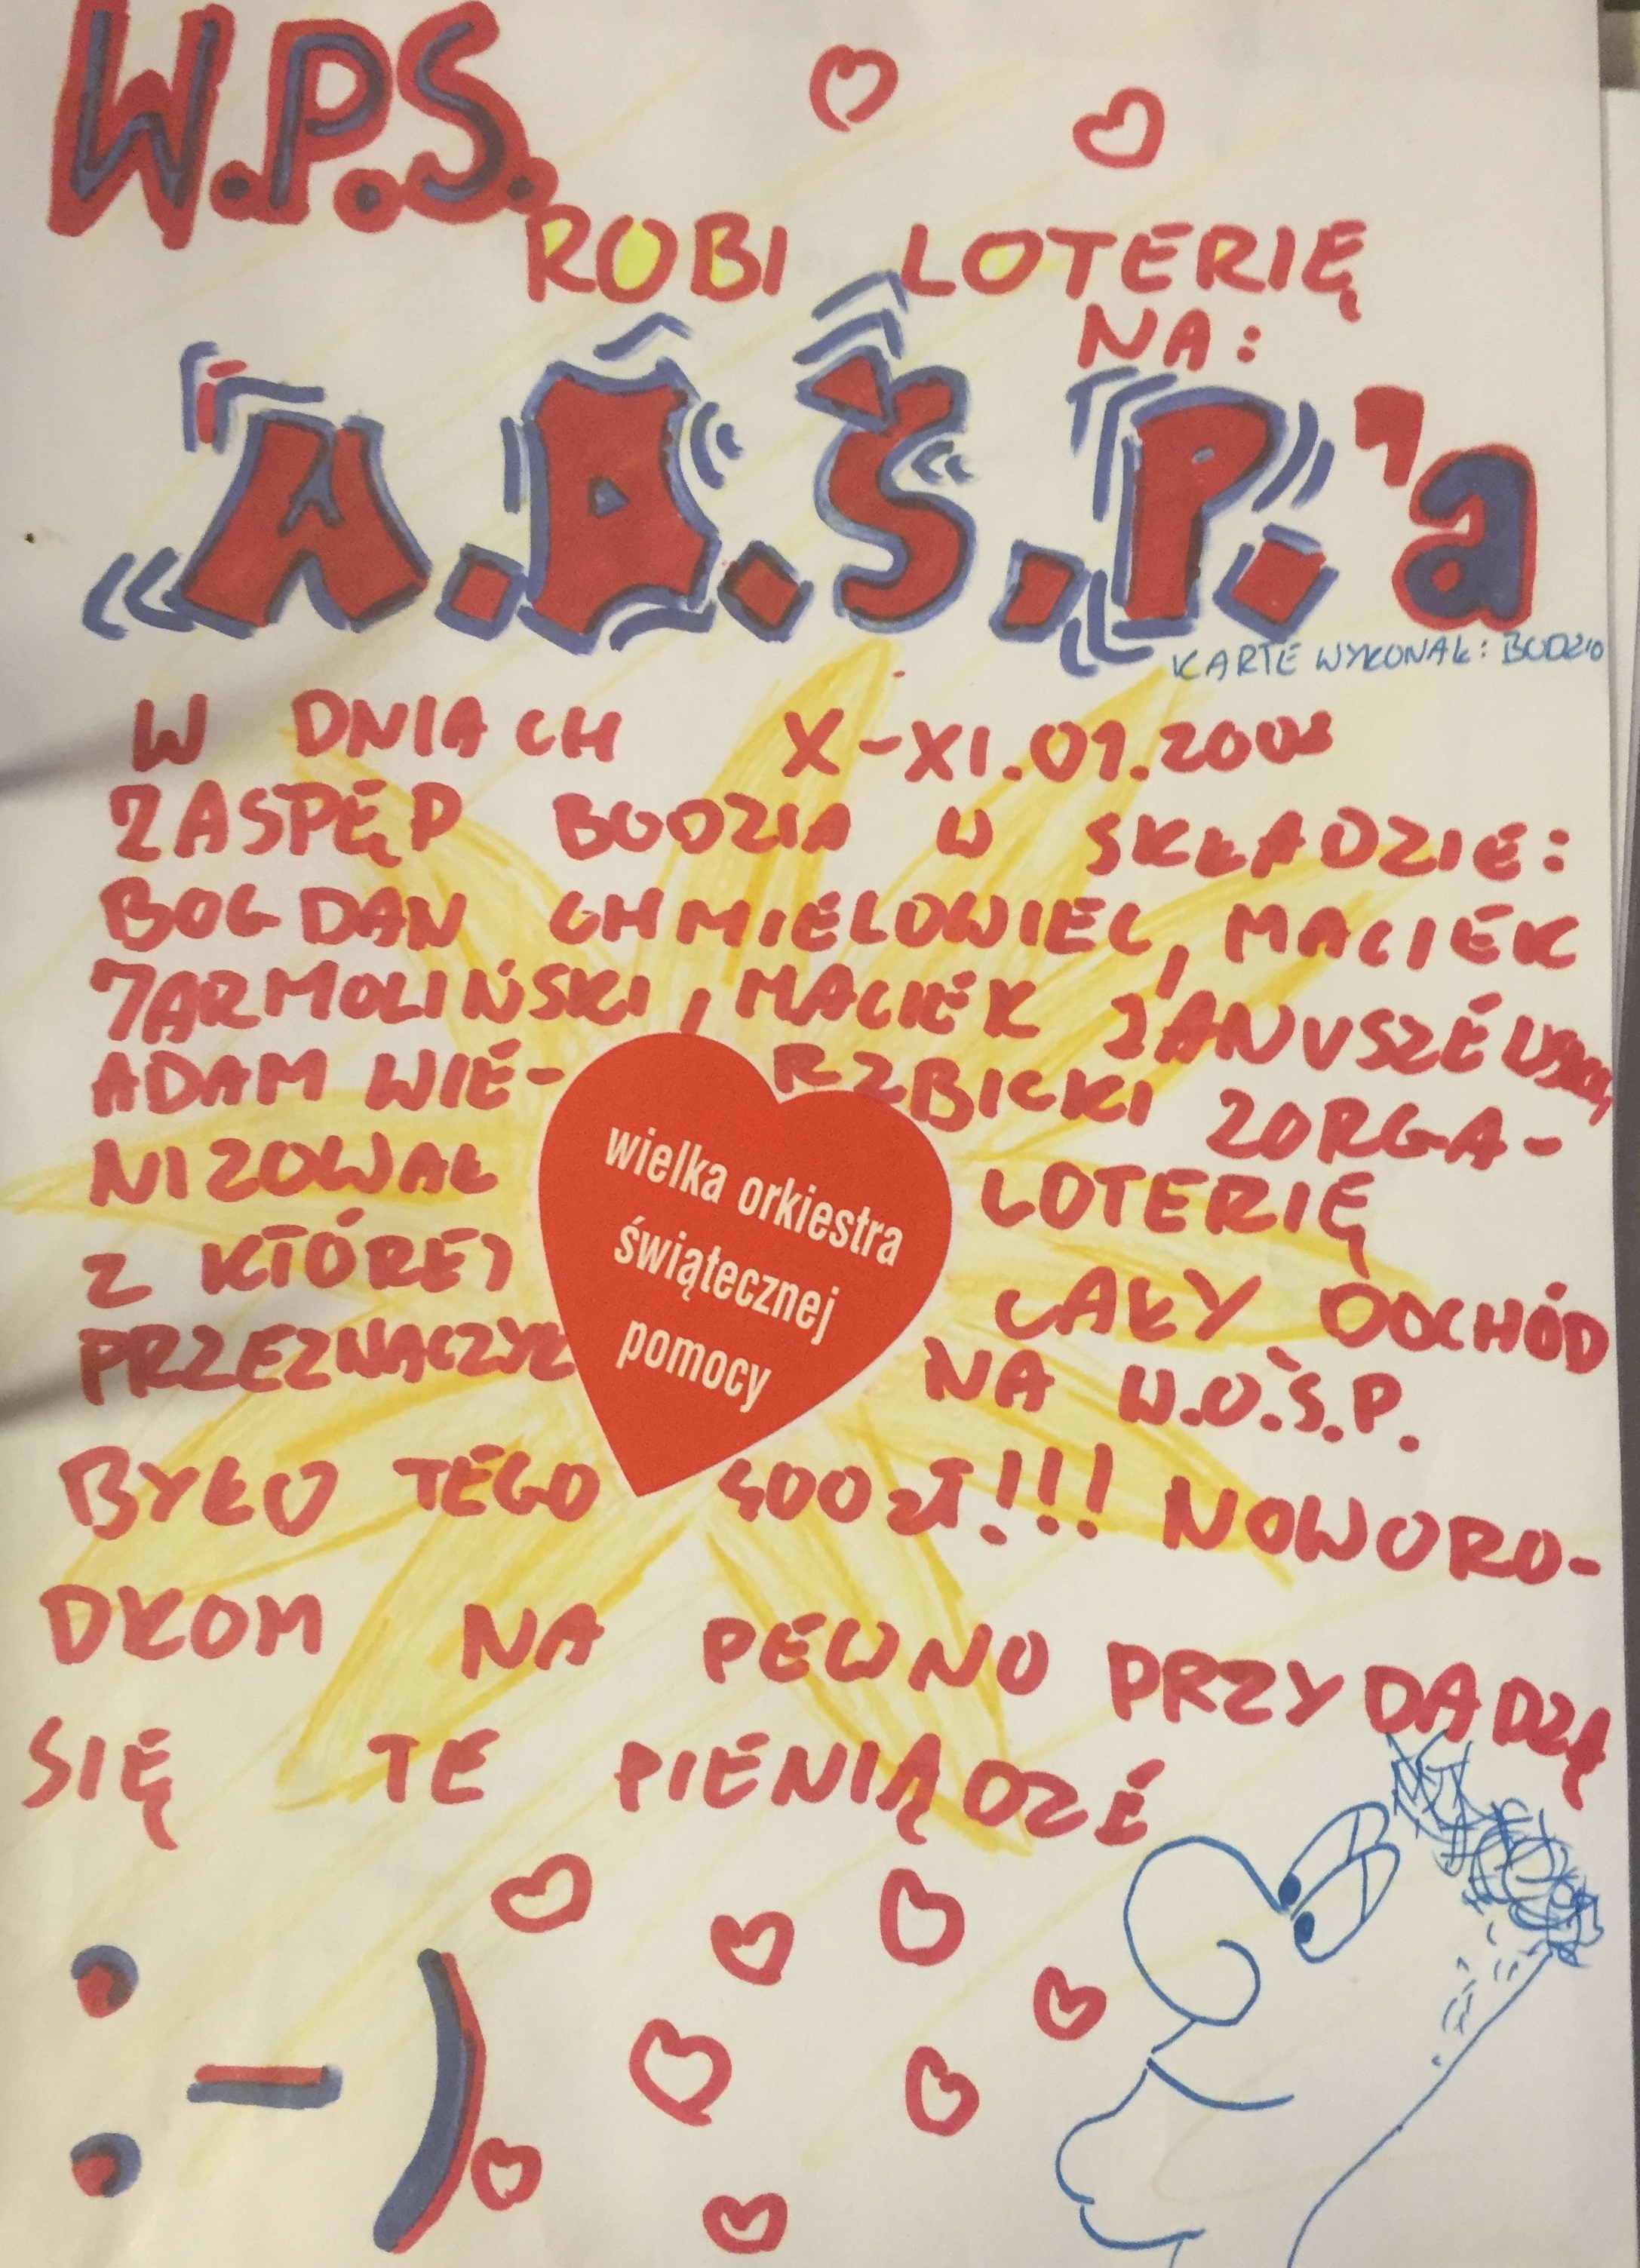 W.P.S.
ROBI LOTERIĘ
NA:
W.O.Ś.P.'a
KARTE WYKONAŁ: BODZIO
W DNIACH X-XI.01.200
ZASPĘP BODZIA W SKŁADZIE:
BOGDAN CHMIELOWIEC, MACIEK
JARMOLIŃSKI, MACIEK JANUSZEWSKI,
ADAM WIE- RZBICKI ZORGA-
NIZOWAŁ LOTERIĘ
Z KTÓREJ CAŁY DOCHÓD
PRZEZNACZYŁ NA W.O.Ś.P.
BYŁO TEGO 400 zł!!! NOWORO-
DKOM NA PEWNO PRZYDADZĄ
SIĘ TE PIENIĄDZE
wielka orkiestra
świątecznej
pomocy
:-)